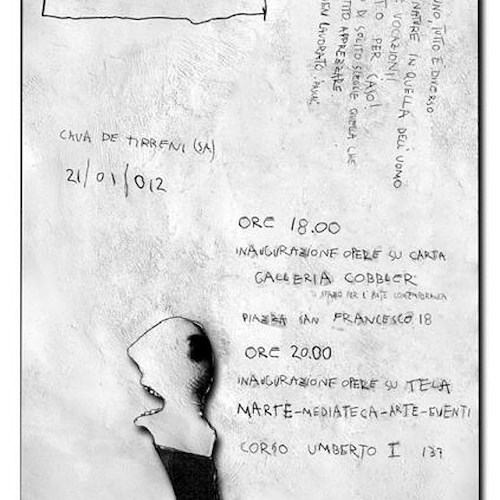 UNO, TUTTO È DIVERSO
NATURE IN QUELLA DELL'UOMO
E VOCAZIONI!
TO PER CASO!
DI SOLITO SCEGLIE QUELLA CHE
TITO APPREZZARE.
BEN LAVORATO.
CAVA DE TIRRENI (SA)
21/01/012
ORE 18.00
INAUGURAZIONE OPERE SU CARTA
GALLERIA COBBLER
SPAZIO PER L'ARTE CONTEMPORANEA
PIAZZA SAN FRANCESCO 18
ORE 20.00
INAUGURAZIONE OPERE SU TELA
MARTE-MEDIATECA-ARTE-EVENTI
CORSO UMBERTO I 137